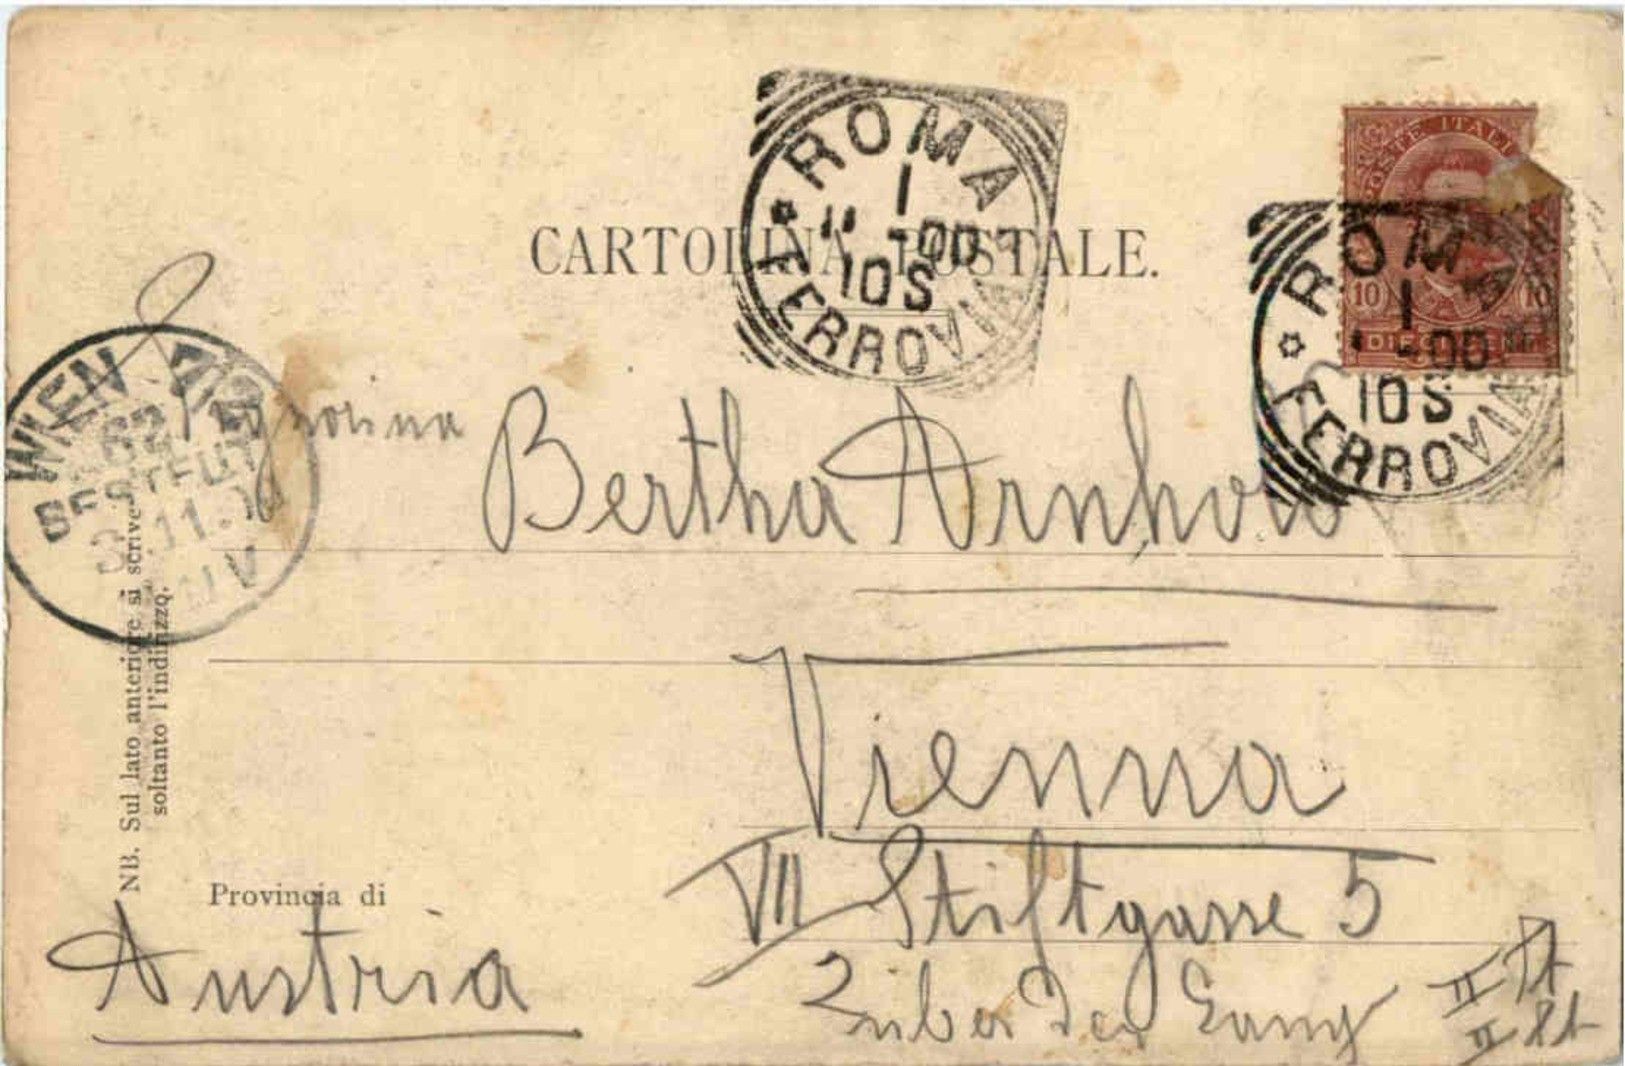 CARTOLINA POSTALE.
ROMA
1
11 -00
10S
FERROVIA
POSTE ITAL
10 10
ROMA
1
-00
10S
FERROVIA
WIEN
Signorina
Bertha Arnhold
Vienna
VII Stiftgasse 5
über den Gang
II St
II St
Provincia di
Austria
NB. Sul lato anteriore si scrive
soltanto l'indirizzo.